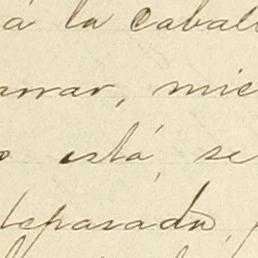 á la caball
arrar, mie
o está, se
deparada,